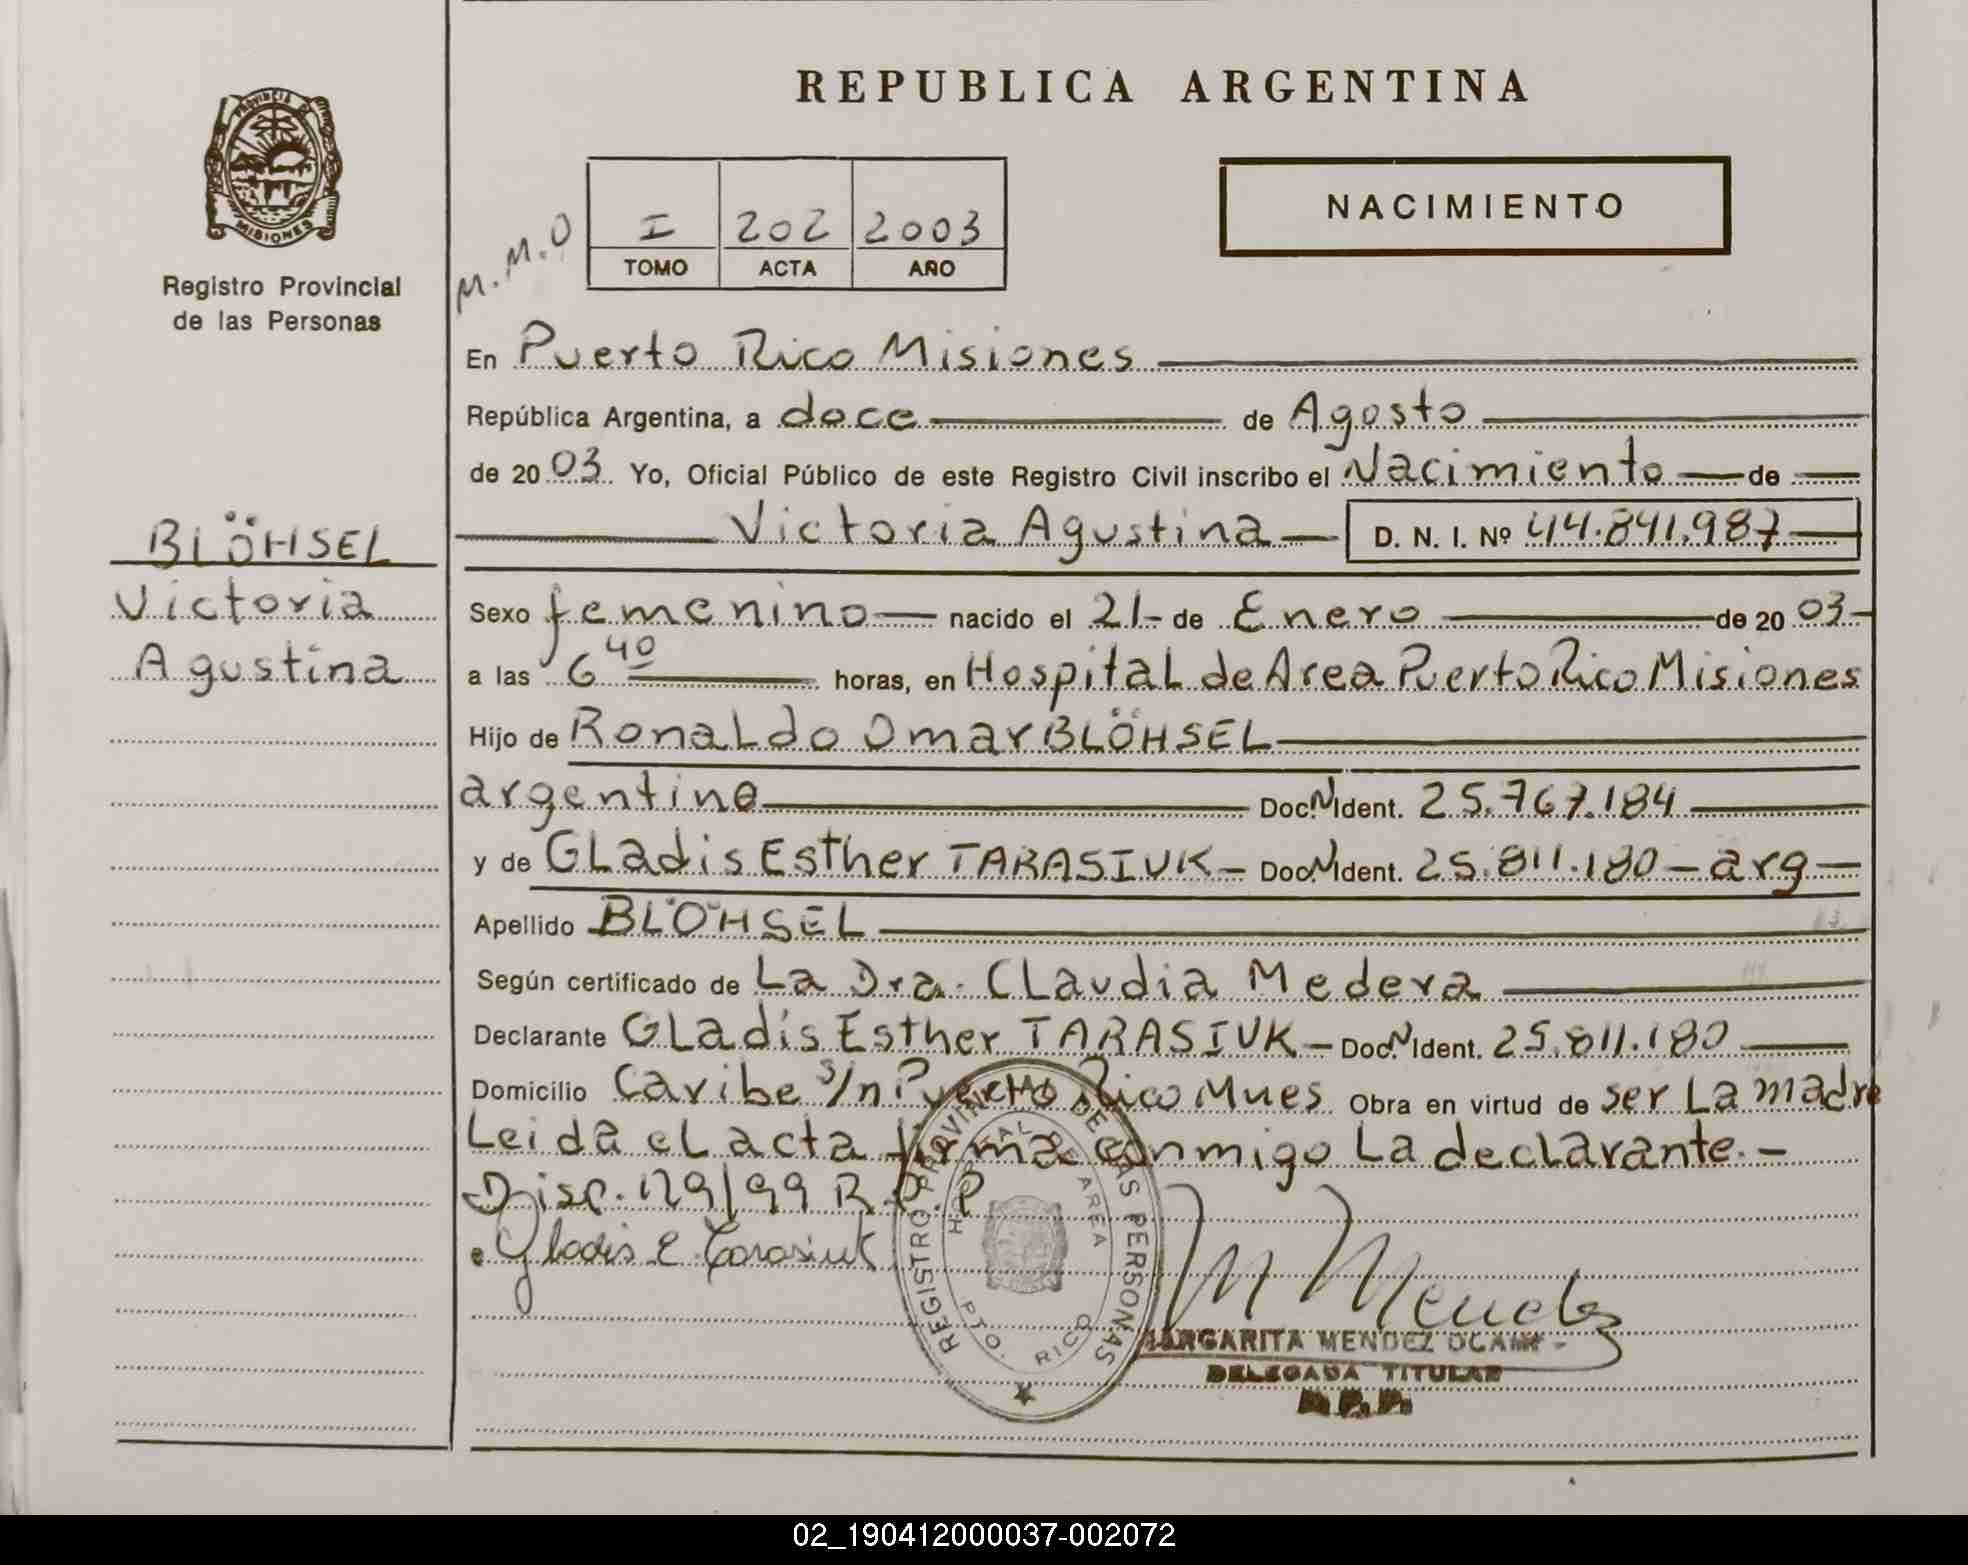 PROVINCIA DE
MISIONES
Registro Provincial
de las Personas
BLÖHSEL
Victoria
Agustina
REPUBLICA ARGENTINA
NACIMIENTO
M.M.O
I 202 2003
TOMO ACTA AÑO
En Puerto Rico Misiones
República Argentina, a doce de Agosto
de 2003 Yo, Oficial Público de este Registro Civil inscribo el Nacimiento de
Victoria Agustina D. N. I. Nº 44.841.987
Sexo femenino nacido el 21 de Enero de 20 03
a las 6 40 horas, en Hospital de Area Puerto Rico Misiones
Hijo de Ronaldo Omar BLÖHSEL
argentino Doc.N.Ident. 25.767.184
y de Gladis Esther TARASIUK Doc.N.Ident. 25.811.180 - arg
Apellido BLÖHSEL
Según certificado de La Dra. Claudia Medera
Declarante Gladis Esther TARASIUK Doc.N.Ident. 25.811.180
Domicilio Caribe s/n Puerto Rico Mnes Obra en virtud de ser La madre
Leida el acta firma conmigo La declarante.-
Disp. 129/99 R.P.P
Gladis E Tarasiuk
REGISTRO PROVINCIAL DE LAS PERSONAS
HOSPITAL AREA
PTO. RICO
M Mendez
MARGARITA MENDEZ OCAMP
DELEGADA TITULAR
R.P.P.
02_190412000037-002072